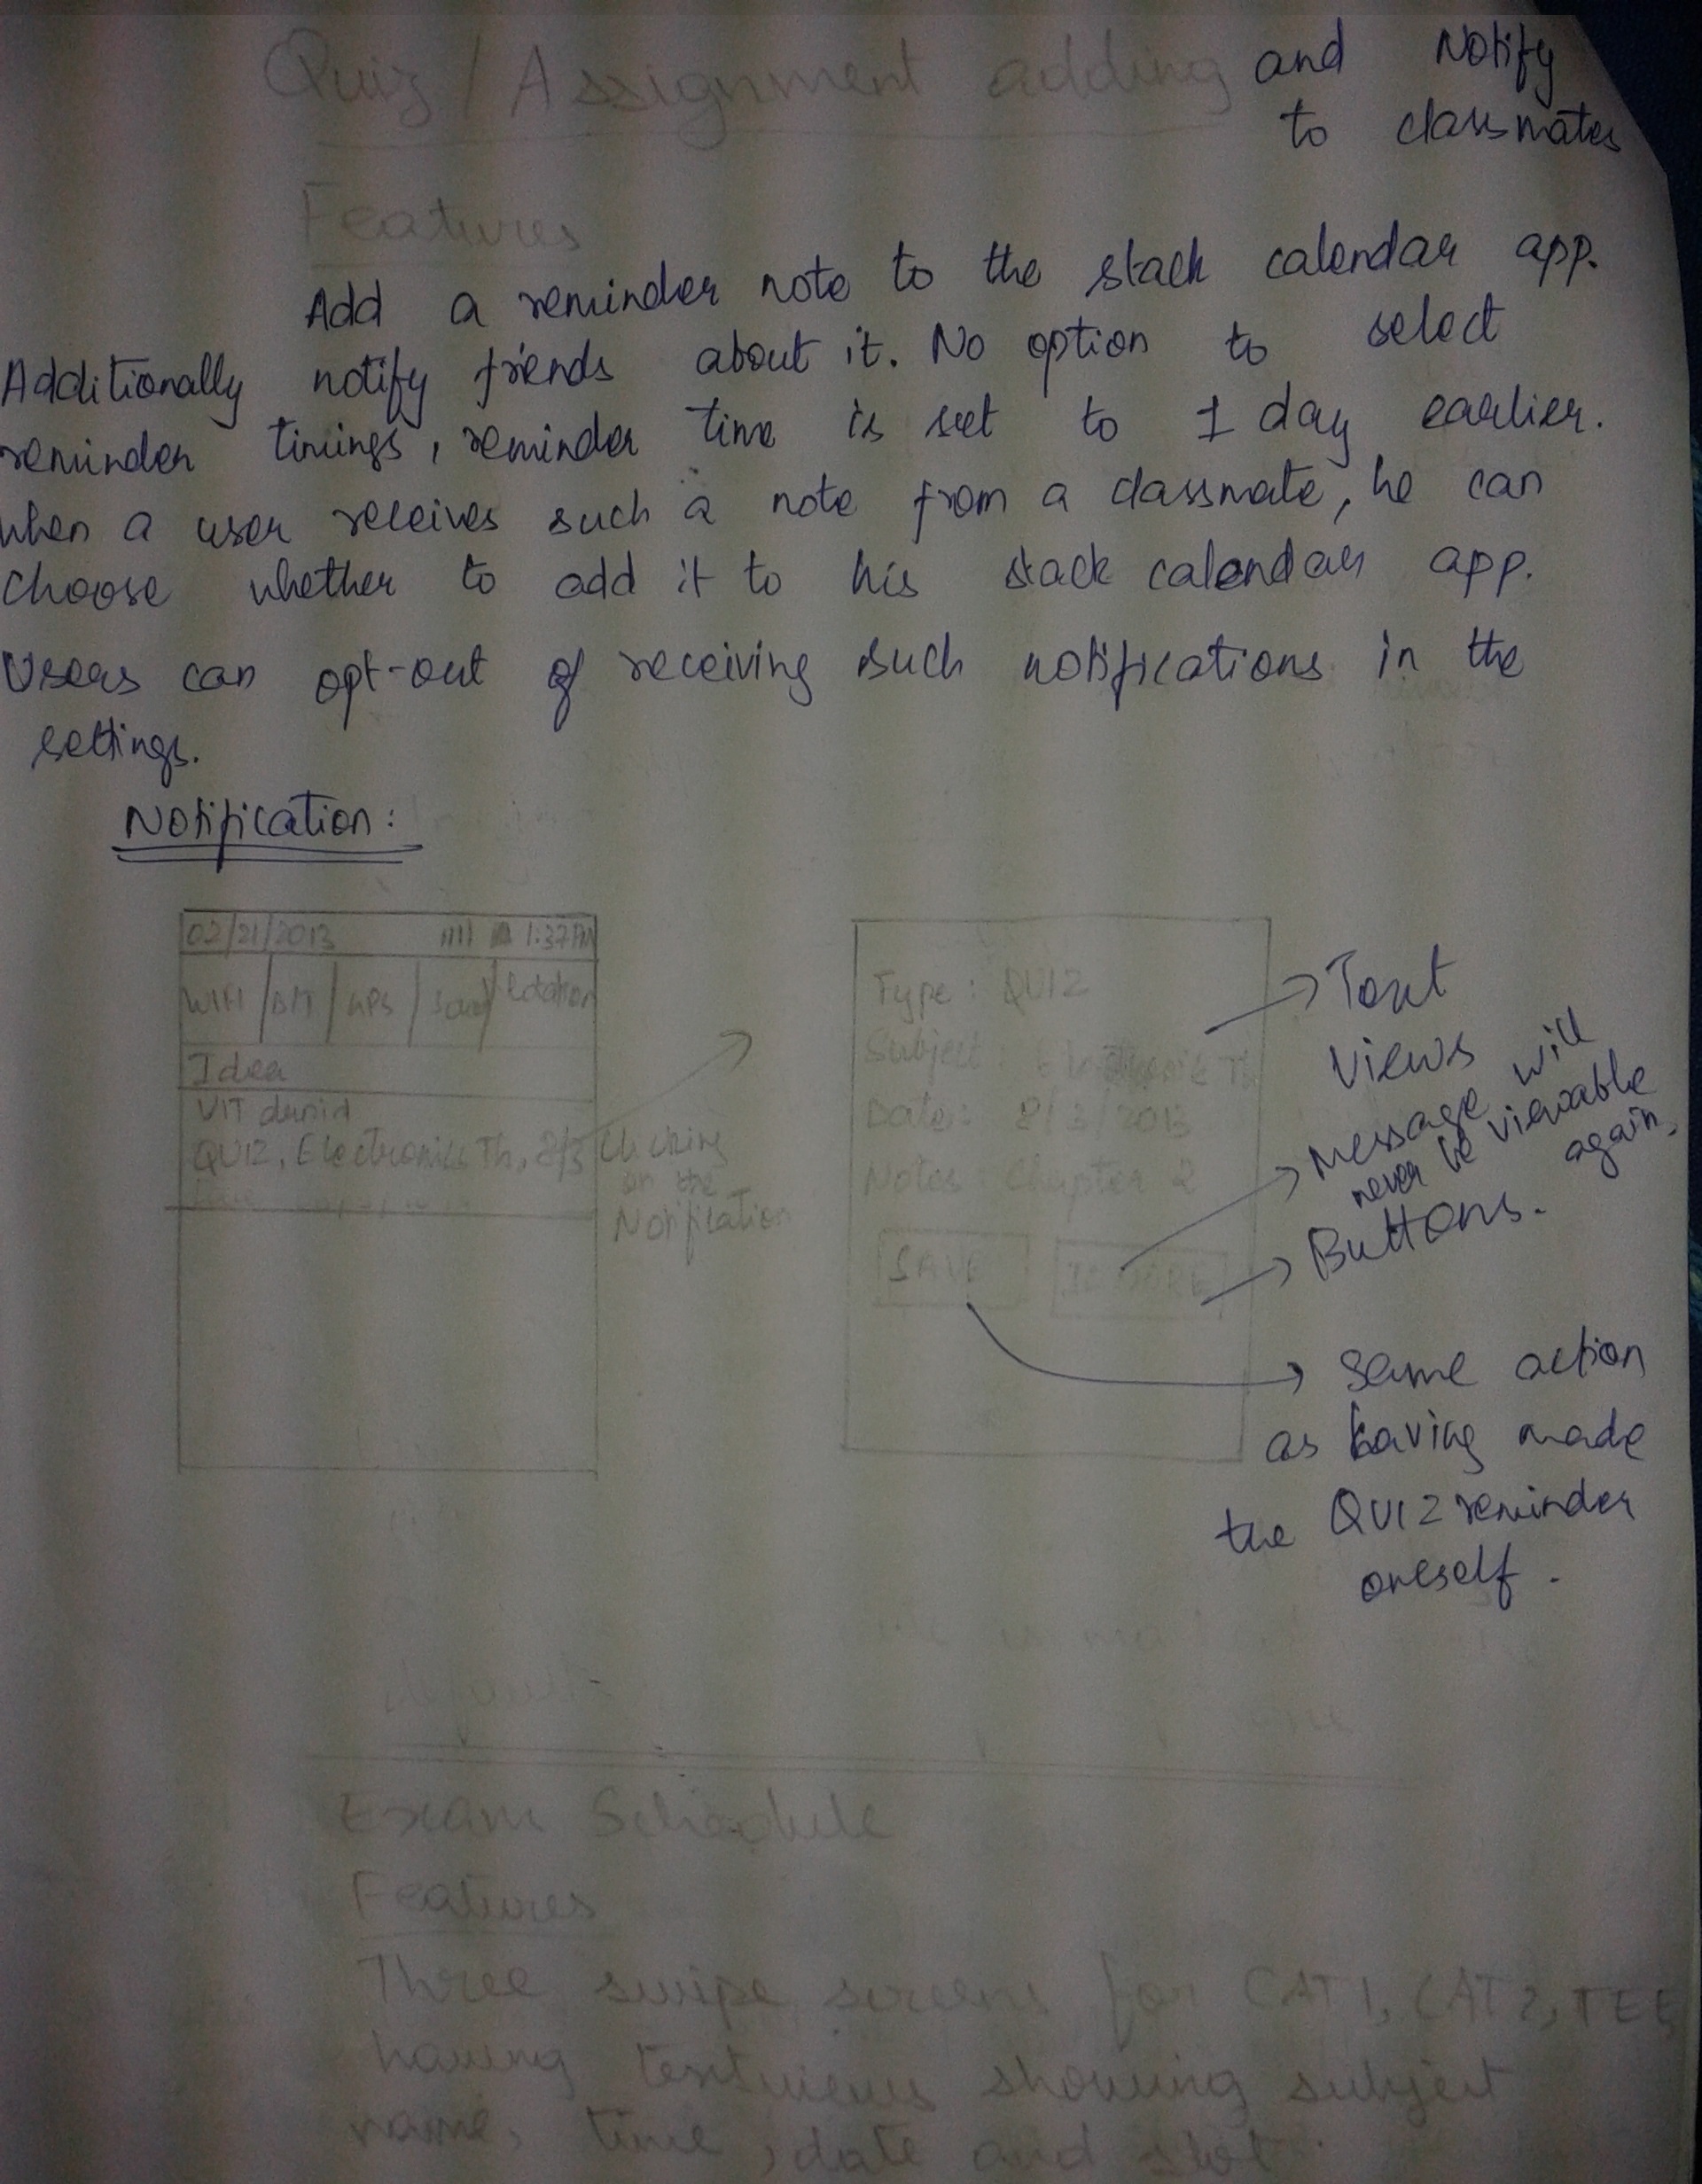 Quiz / Assignment adding and Notify
to classmates
Features
Add a reminder note to the stack calendar app.
Additionally notify friends about it. No option to select
reminder timings, reminder time is set to 1 day earlier.
when a user receives such a note from a classmate, he can
choose whether to add it to his stack calendar app.
Users can opt-out of receiving such notifications in the
settings.
Notification:
02/21/2013 1:37PM
WIFI / BIT / GPS / Sound / Rotation
Idea
VIT
QUIZ, Electronics Th, 8/3
Clicking
on the
Notification
Type: QUIZ
Subject: Th
Date: 8/3/2013
Notes: Chapter 2
SAVE IGNORE
Text
Views
Message will
never be viewable
again.
Buttons.
Same action
as having made
the QUIZ reminder
oneself.
Exam Schedule
Features
Three swipe screens for CAT1, CAT2, TEE
having textviews showing subject
name, time, date and slot.